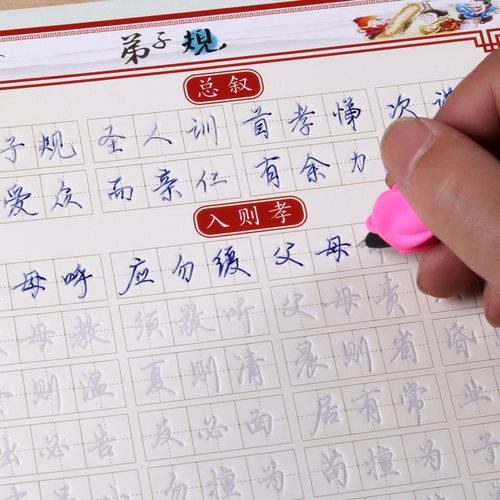 弟子规
总叙
子规 圣人训 首孝悌 次
受众 而亲仁 有余力
入则孝
母呼 应勿缓 父母
母教 须敬听 父母责
则温 夏则清 晨则省 昏
必告 反必面 居有常 业
勿擅为 苟擅为 子